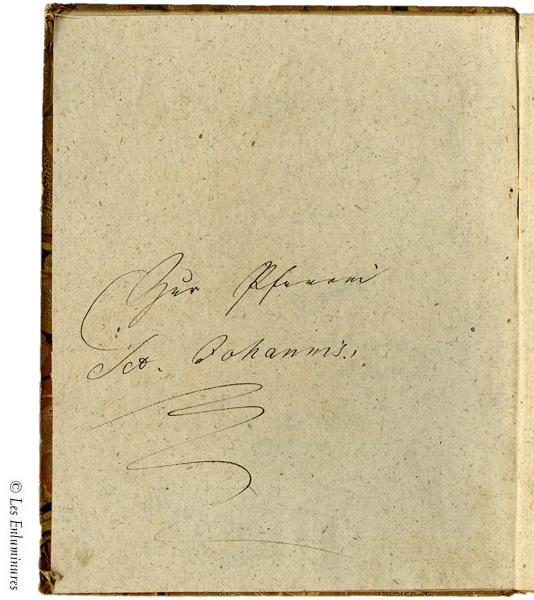 Zur Pfarrei
Sct. Johannis.
© Les Enluminures